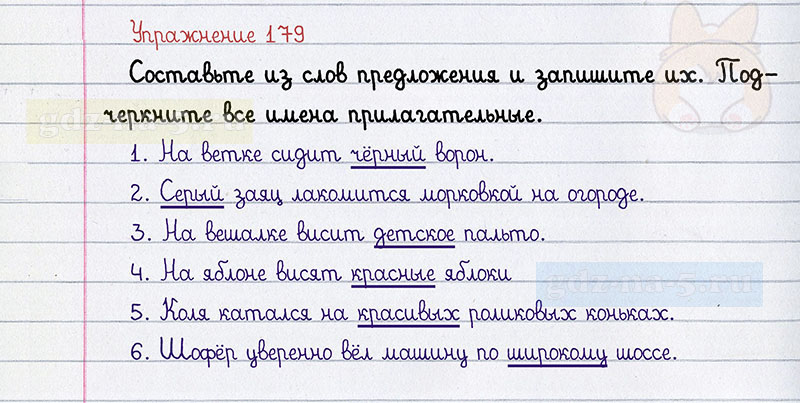 Упражнение 179
Составьте из слов предложения и запишите их. Под-
черкните все имена прилагательные.
gdz-na-5.ru
1. На ветке сидит чёрный ворон.
2. Серый заяц лакомится морковкой на огороде.
3. На вешалке висит детское пальто.
4. На яблоне висят красные яблоки
gdz-na-5.ru
5. Коля катался на красивых роликовых коньках.
6. Шофёр уверенно вёл машину по широкому шоссе.